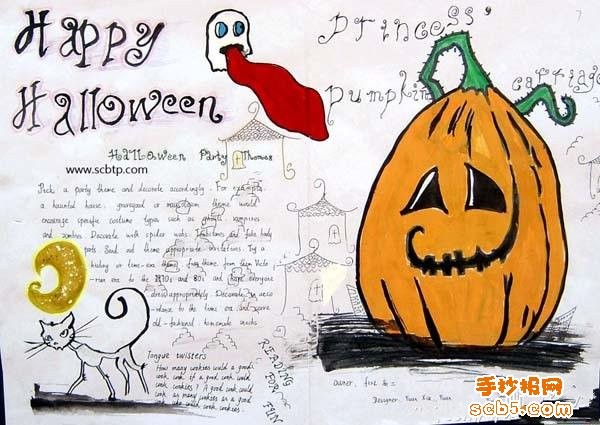 Happy
Halloween
Princess'
pumpkin
cartiage
Halloween Party Themes
www.scbtp.com
Pick a party theme and decorate accordingly. For example.
a haunted house, graveyard or mausoleum theme would
encourage specific costume types such as ghouls, vampires
and zombies. Decorate with spider webs. Tombstones and fake body
parts. Send out theme appropriate invitations. Try a
holiday or time-era theme from them Victo
-rian era to the 1970s and 80s and have everyone
dress appropriately. Decorate in acco
-dance to the time era and serve
old-fashional homemade snacks
Tongue twisters
How many cookies would a good
cook cook if a good cook could
cook cookies? A good cook could
cook as many cookies as a good
cook who could cook cookies.
READING
FOR
FUN
owner: five
Designer: Yuan Xie, Yuan
手抄报网
scb5.com